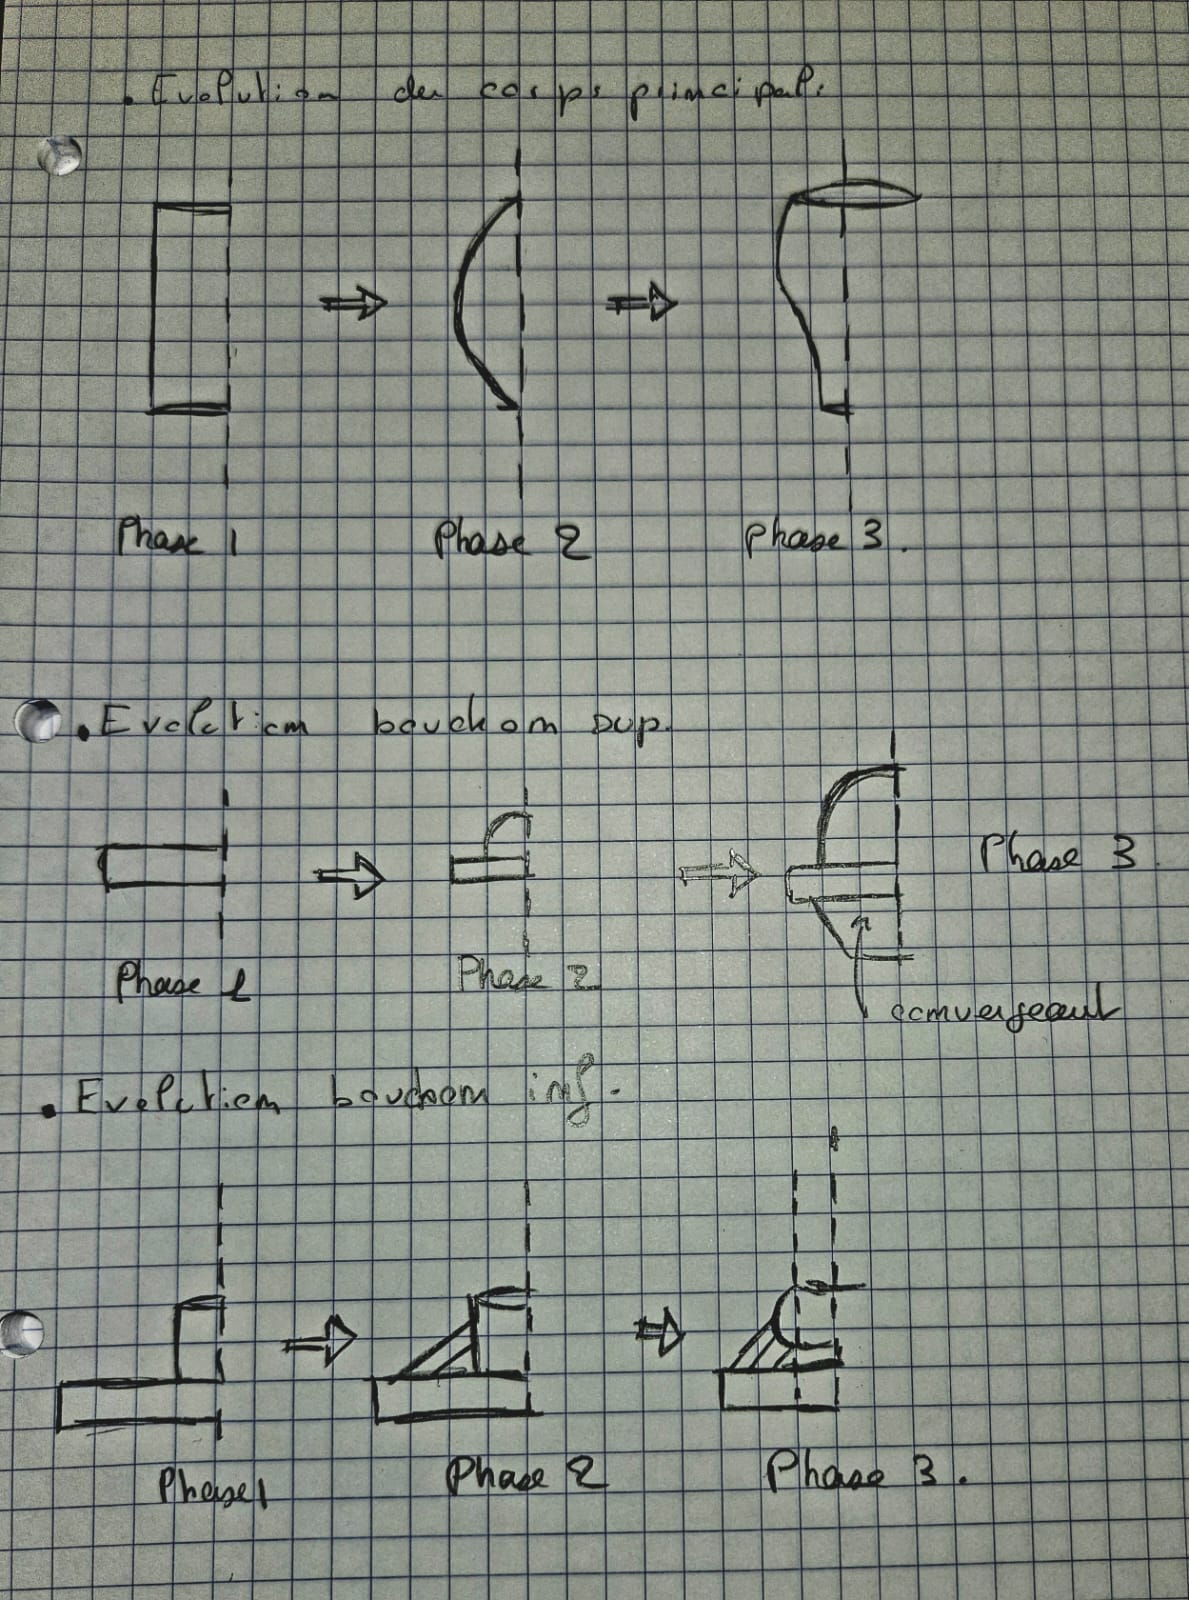 . Evolution du corps principal.
Phase 1
Phase 2
phase 3.
. Evolution bouchon sup.
Phase 3.
Phase 1
Phase 2
convergeant
. Evolution bouchon inf.
Phase 1
Phase 2
Phase 3.